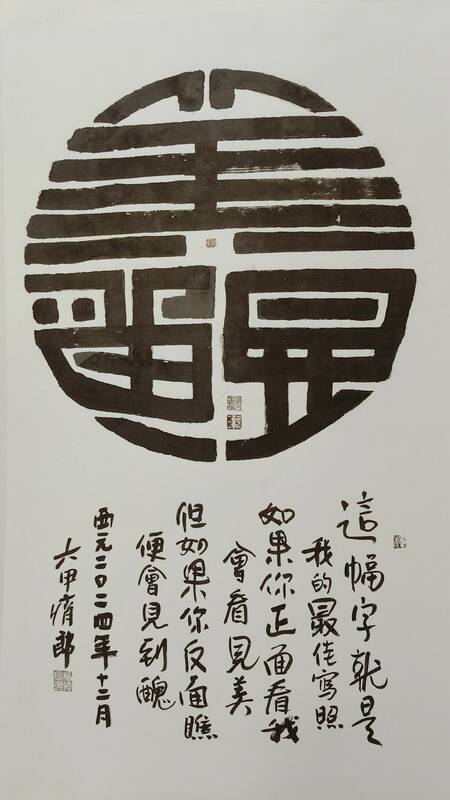 美
醜
這幅字就是
我的最佳寫照
如果你正面看我
會看見美
但如果你反面瞧
便會見到醜
西元二〇二四年十二月
六甲郎